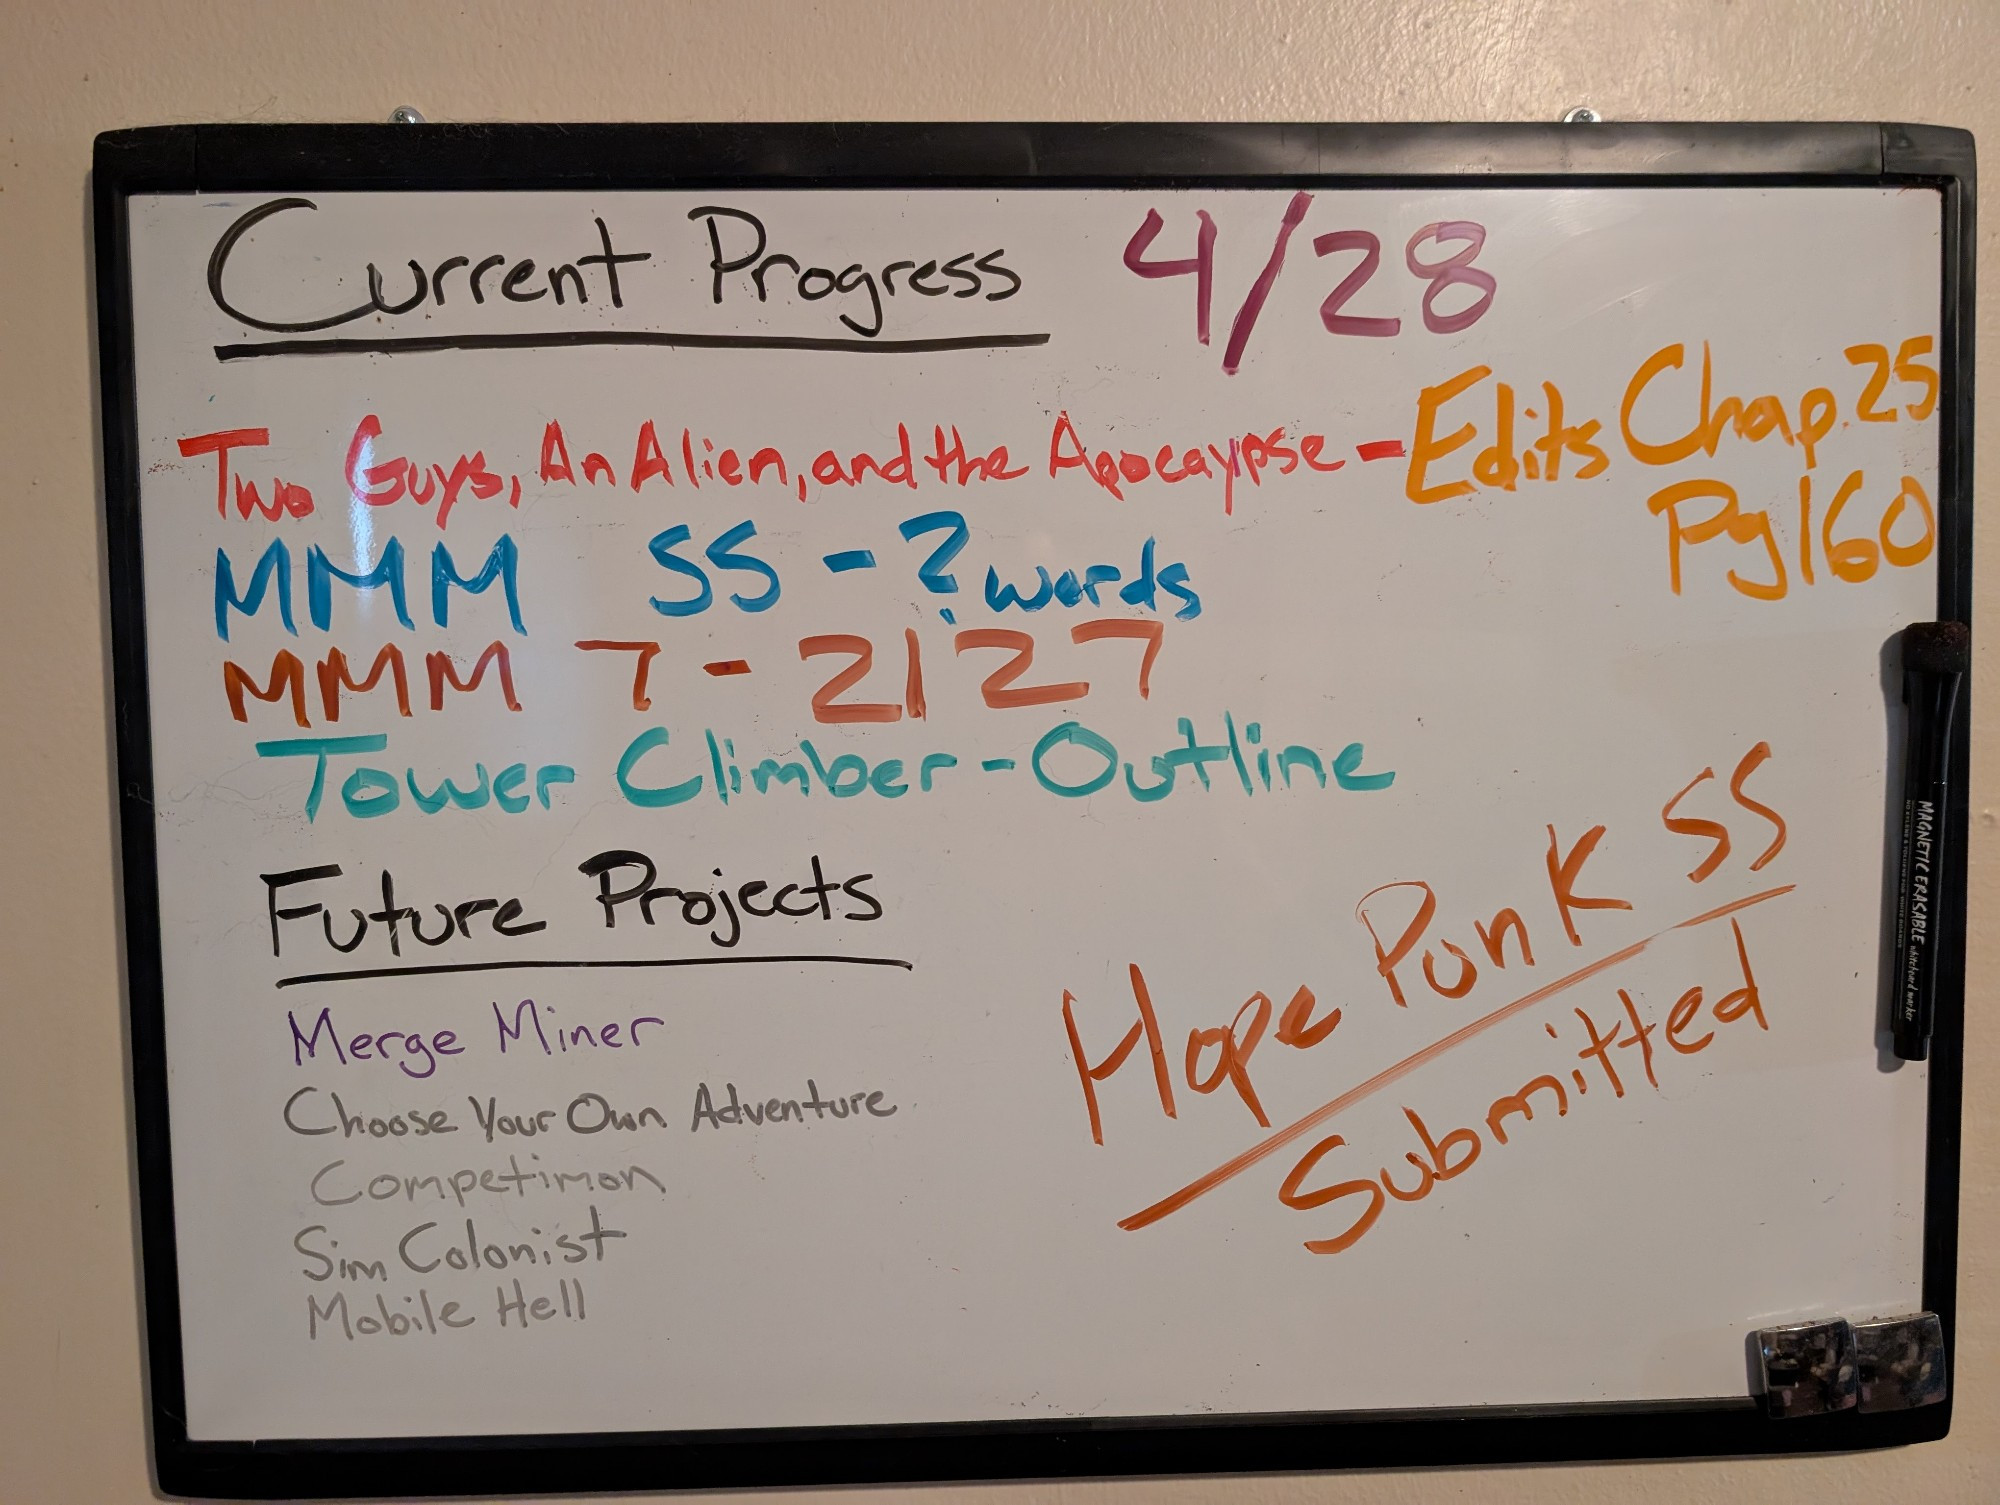 Current Progress 4/28
Two Guys, An Alien, and the Apocaypse - Edits Chap. 25
Pg 160
MMM SS - ? words
MMM 7 - 2127
Tower Climber - Outline
Future Projects
Merge Miner
Choose Your Own Adventure
Competimon
Sim Colonist
Mobile Hell
Hope Punk SS
Submitted
MAGNETIC ERASABLE whiteboard marker